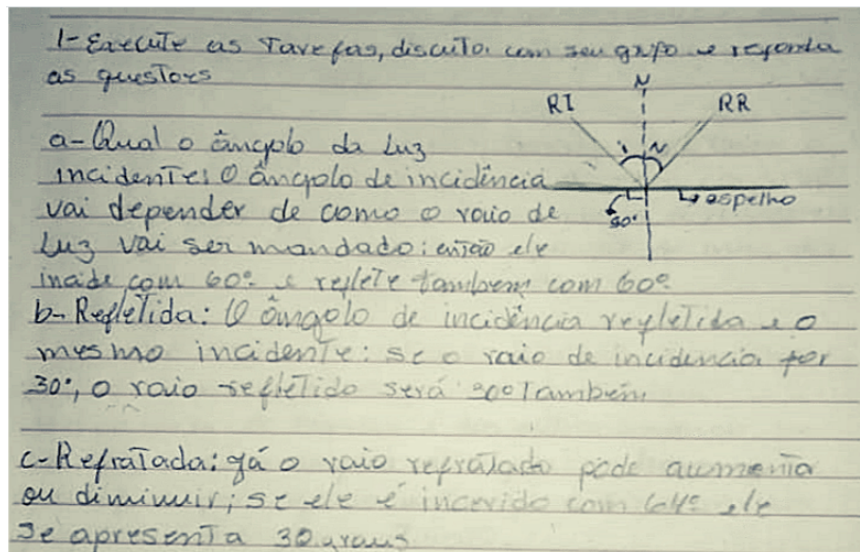 1- Execute as Tarefas, discuta com seu grupo e responda
as questões
N
RI
RR
a- Qual o ângolo da Luz
incidente: O ângolo de incidência
i
espelho
vai depender de como o raio de
90°
Luz vai ser mandado: então ele
incide com 60° e reflete tambem com 60°
b- Refletida: O ângolo de incidência refletida e o
mesmo incidente: se o raio de incidencia for
30°, o raio refletido será 30° Também
c- Refratada: já o raio refratado pode aumenta
ou diminuir; se ele é incerido com 64° ele
se apresenta 30 graus